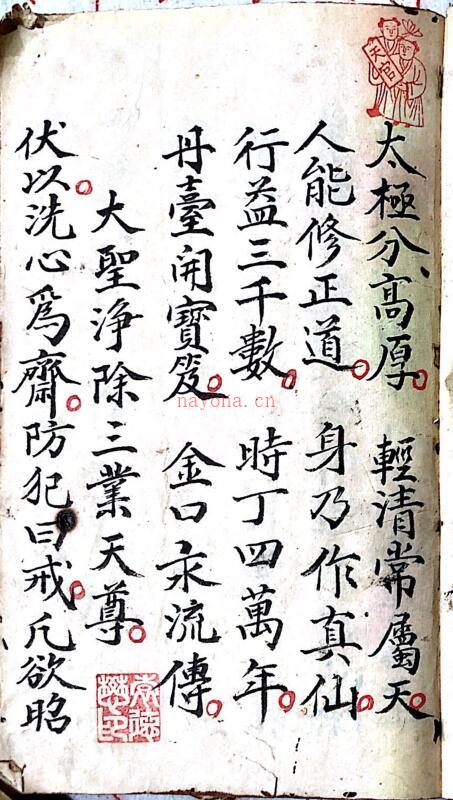 天官
太極分高厚。輕清常屬天。
人能修正道。身乃作真仙。
行益三千數。時丁四萬年。
丹臺開寶笈。金口永流傳。
大聖淨除三業天尊。
伏以。洗心爲齋。防犯曰戒。凡欲昭
nayona.cn